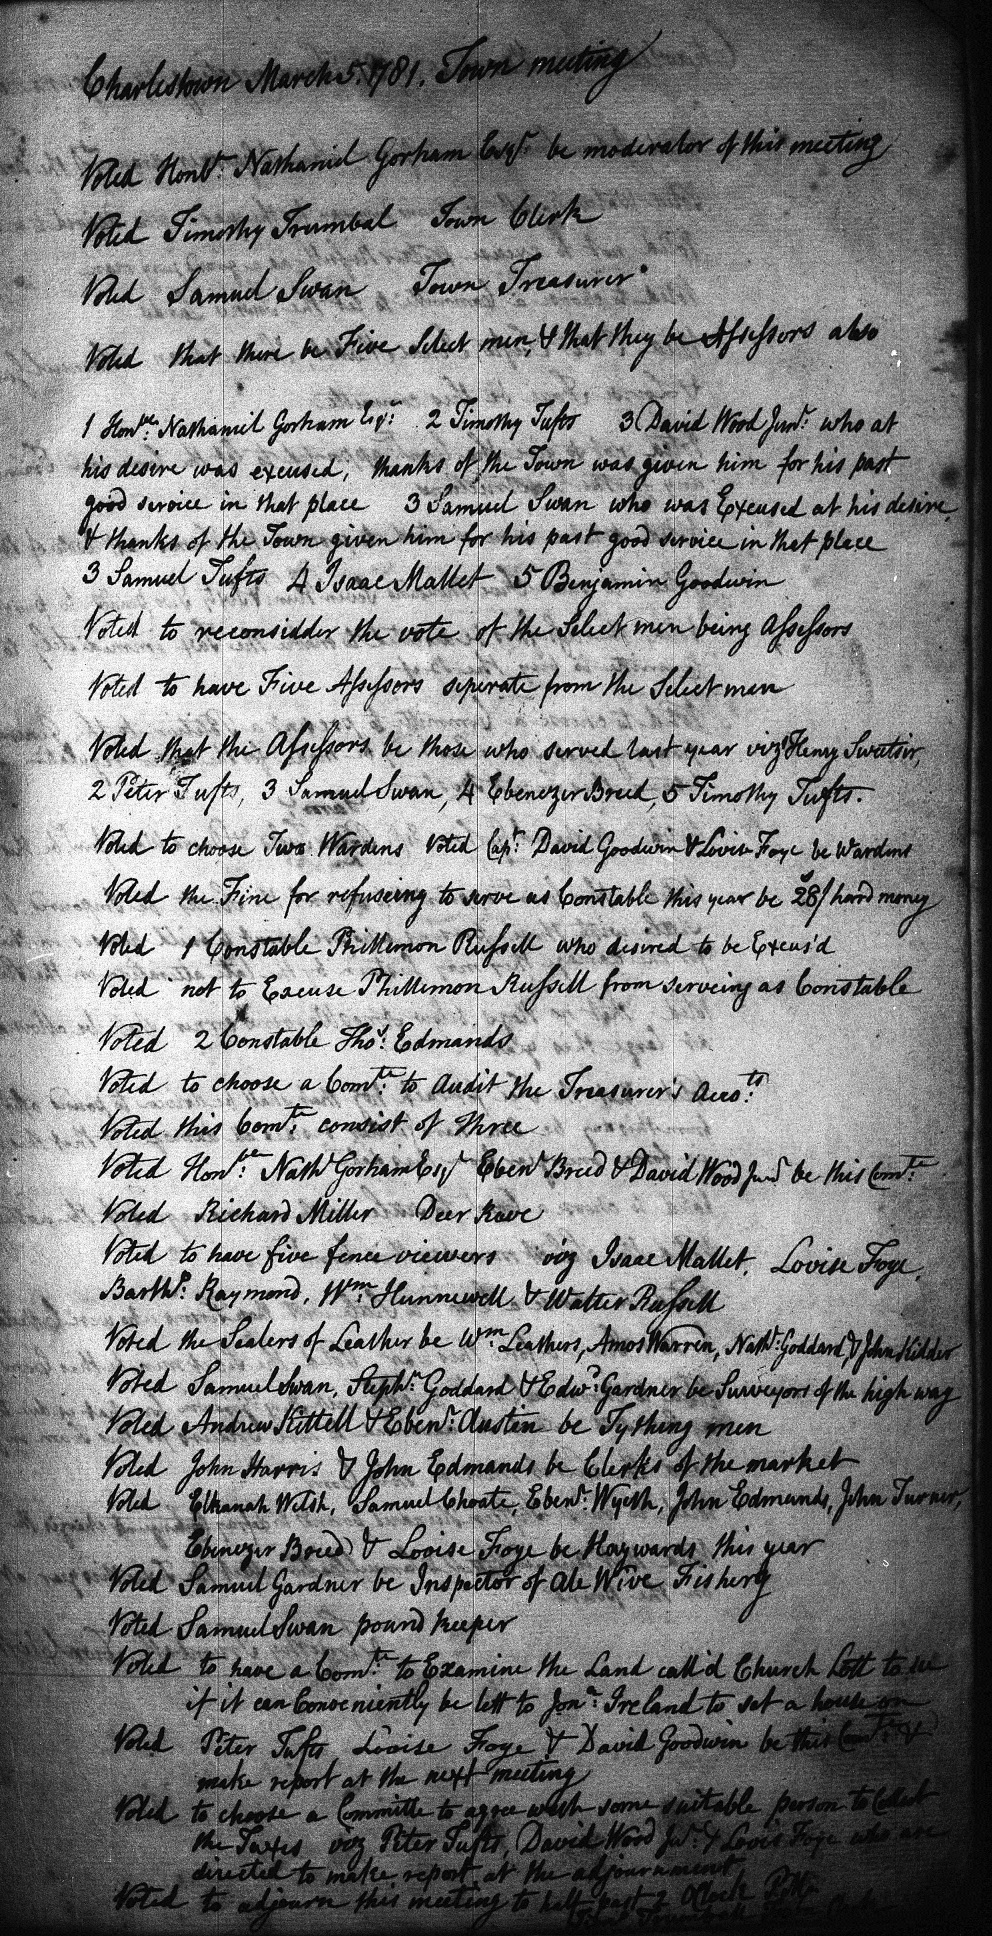 Charlestown March 5. 1781. Town meeting
Voted Honble. Nathaniel Gorham Esqr. be moderator of this meeting
Voted Timothy Trumbal Town Clerk
Voted Samuel Swan Town Treasurer
Voted that there be Five Select men, & that they be Assessors also
1 Honble. Nathaniel Gorham Esqr. 2 Timothy Tufts 3 David Wood Junr. who at
his desire was excused, thanks of the Town was given him for his past
good service in that place 3 Samuel Swan who was Excused at his desire
& thanks of the Town given him for his past good service in that place
3 Samuel Tufts 4 Isaac Mallet 5 Benjamin Goodwin
Voted to reconsidder the vote of the Select men being Assessors
Voted to have Five Assessors seperate from the Select men
Voted that the Assessors be those who served last year vizt Henry Swetsir,
2 Peter Tufts, 3 Samuel Swan, 4 Ebenezer Breed, 5 Timothy Tufts.
Voted to choose Two Wardens Voted Capt. David Goodwin & Lovise Foye be Wardens
Voted the Fine for refuseing to serve as Constable this year be 28/ hard money
Voted 1 Constable Phillemon Russell who desired to be Excus'd
Voted not to Excuse Phillemon Russell from serveing as Constable
Voted 2 Constable Thos. Edmands
Voted to choose a Comte. to Audit the Treasurer's Accots.
Voted this Comte. consist of Three
Voted Honble. Nathl Gorham Esqr Ebenr Breed & David Wood Junr be this Comte.
Voted Richard Miller Deer Reve
Voted to have five fence viewers viz Isaac Mallet, Lovise Foye,
Barthw. Raymond, Wm. Hunnewell & Walter Russell
Voted the Sealers of Leather be Wm. Leathers, Amos Warren, Nathl. Goddard, & John Kidder
Voted Samuel Swan, Stephn. Goddard & Edwd. Gardner be Surveyors of the high way
Voted Andrew Kittell & Ebenr. Austin be Tything men
Voted John Harris & John Edmands be Clerks of the market
Voted Elkanah Welsh, Samuel Choate, Ebenr. Wyeth, John Edmands, John Turner,
Ebenezer Breed & Lovise Foye be Haywards this year
Voted Samuel Gardner be Inspector of Ale Wive Fishery
Voted Samuel Swan pound keeper
Voted to have a Comte. to Examine the Land call'd Church Lott to see
if it can Conveniently be lett to Jona. Ireland to set a house on
Voted Peter Tufts Lovise Foye & David Goodwin be this Comte. &
make report at the next meeting
Voted to choose a Committe to agree with some suitable person to Collect
the Taxes viz Peter Tufts, David Wood Jur. & Lovis Foye who are
directed to make report at the adjournment
Voted to adjourn this meeting to half past 2 OClock